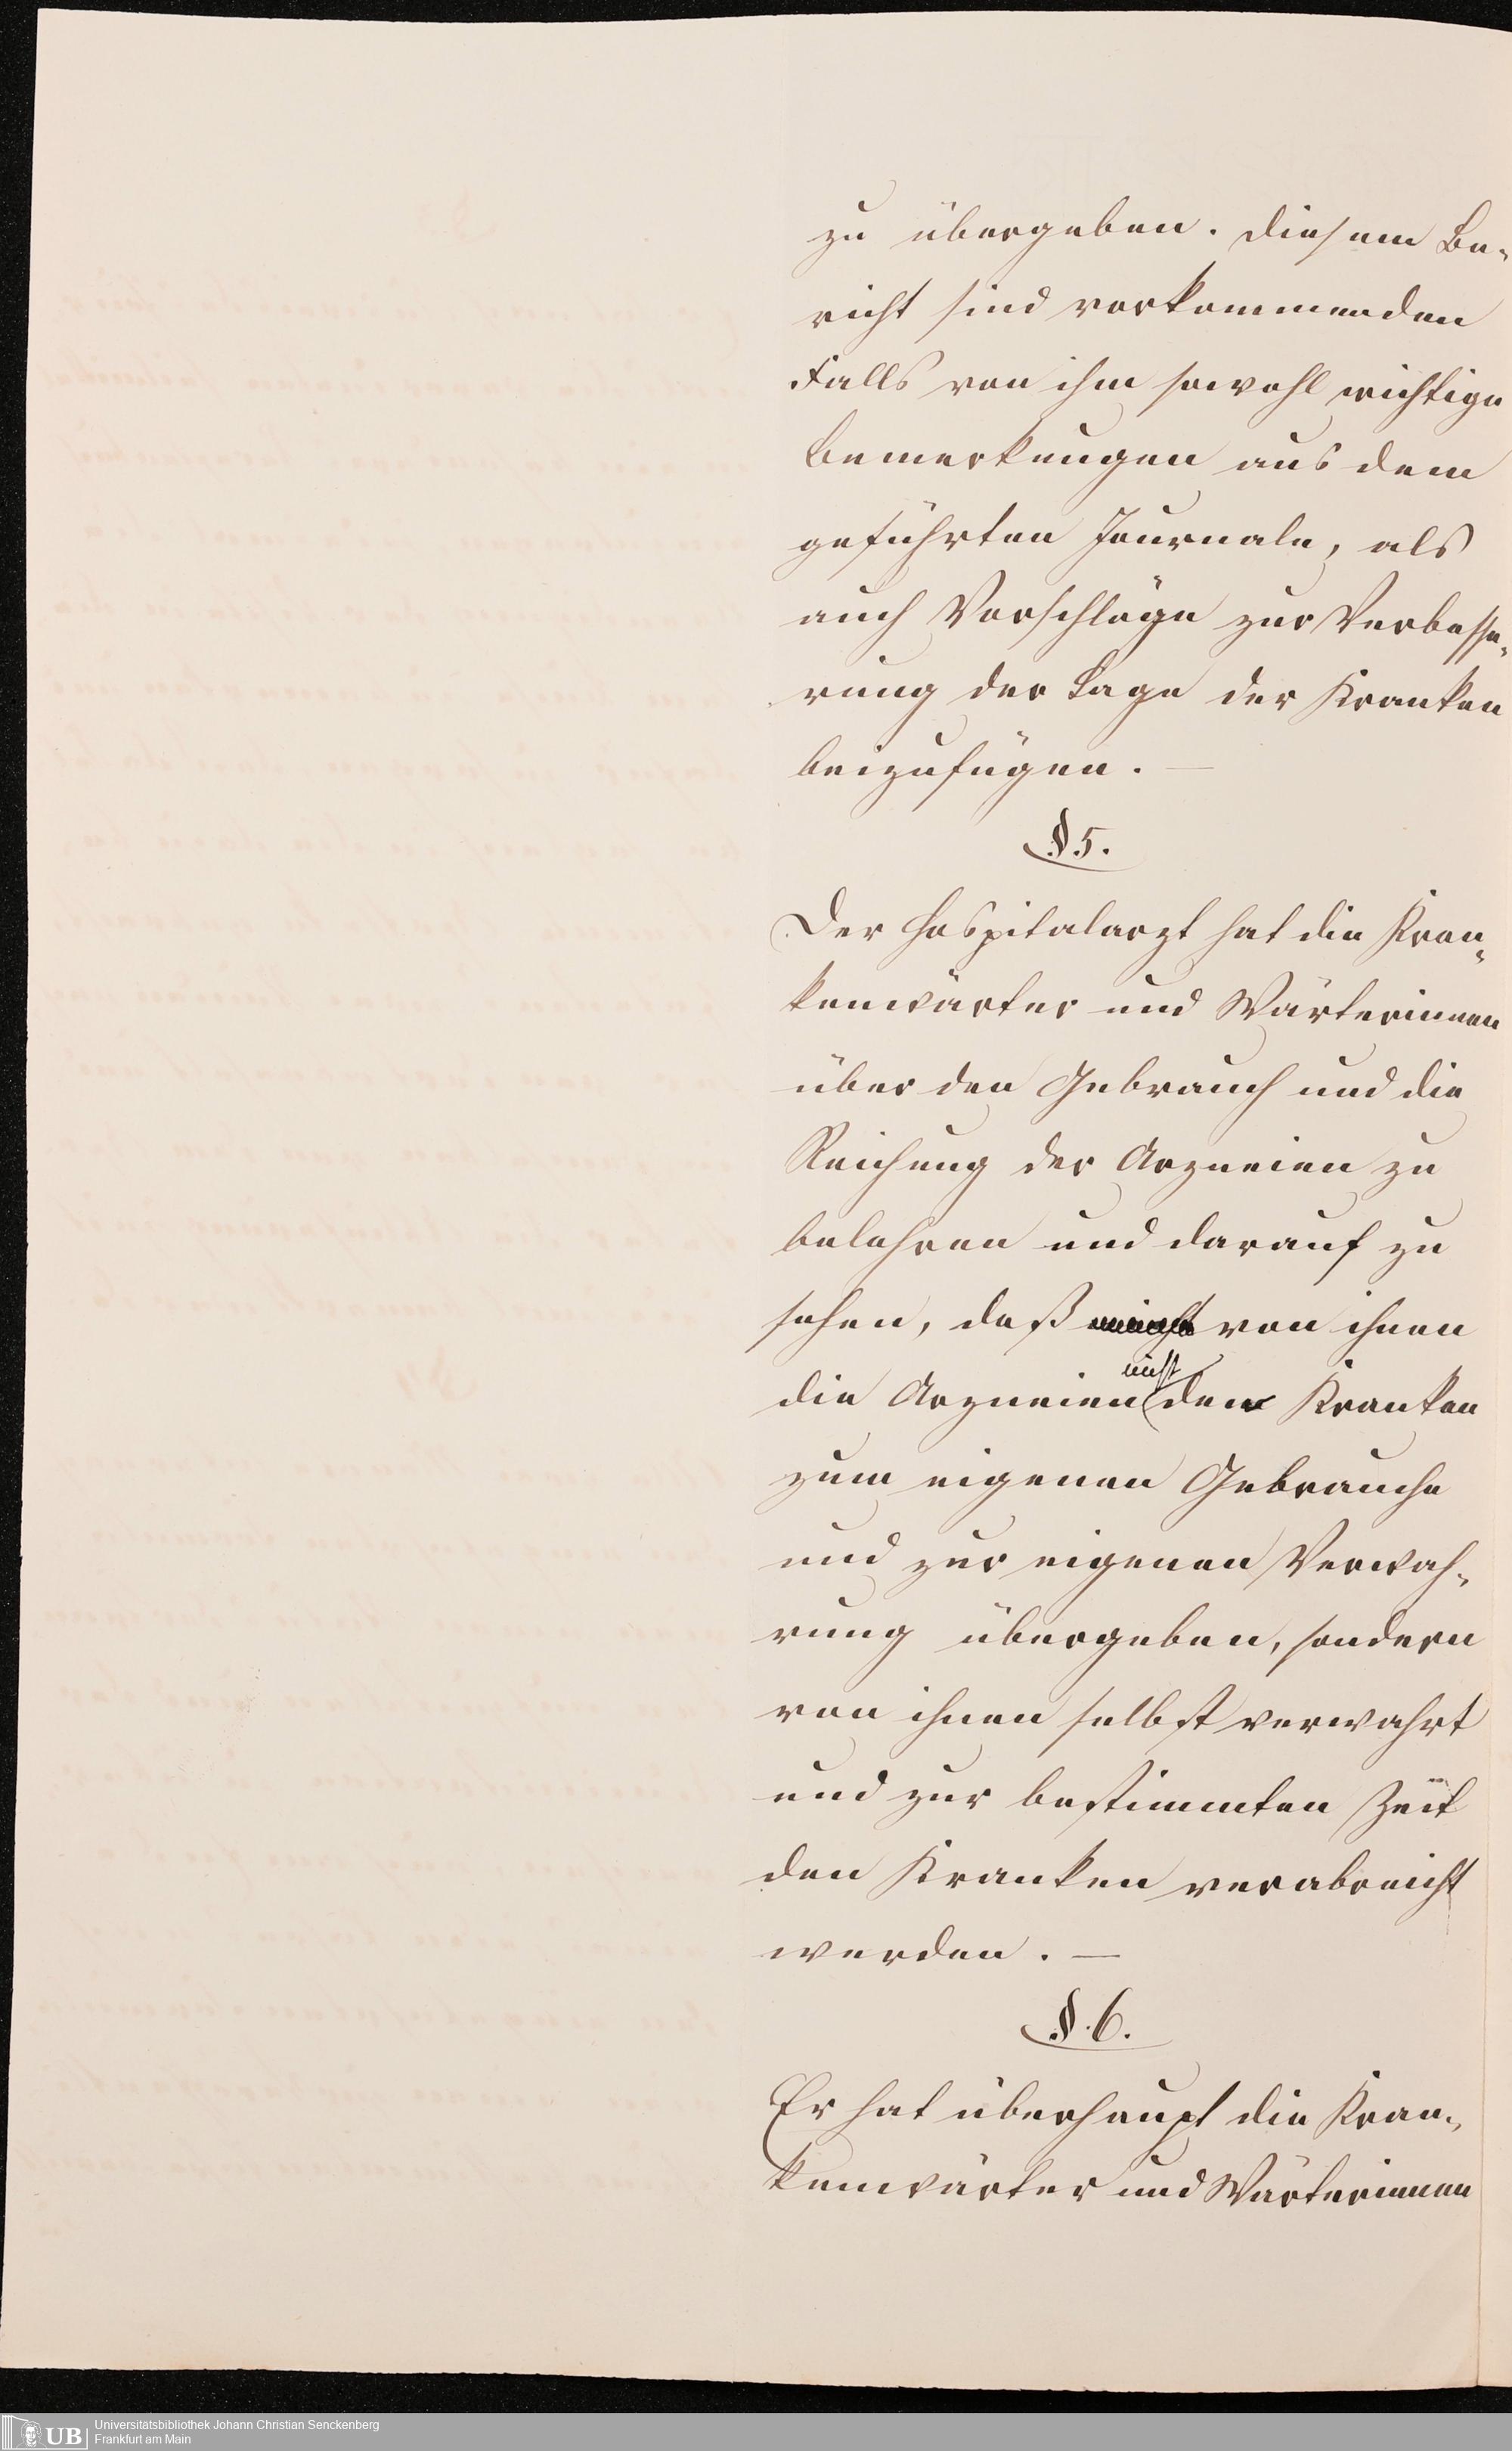 zu übergeben. Diesem Be-
richt sind vorkommenden
Falls von ihm sowohl wichtige
Bemerkungen aus dem
geführten Journale, als
auch Vorschläge zur Verbesse-
rung der Lage der Kranken
beizufügen. —
§. 5.
Der Hospitalarzt hat die Kran-
kenwärter und Wärterinnen
über den Gebrauch und die
Reichung der Arzneien zu
belehren und darauf zu
sehen, daß von ihnen
nicht
die Arzneien den Kranken
zum eigenen Gebrauche
und zur eigenen Verwah-
rung übergeben, sondern
von ihnen selbst verwahrt
und zur bestimmten Zeit
den Kranken verabreicht
werden. —
§. 6.
Er hat überhaupt die Kran-
kenwärter und Wärterinnen
UB
Universitätsbibliothek Johann Christian Senckenberg
Frankfurt am Main